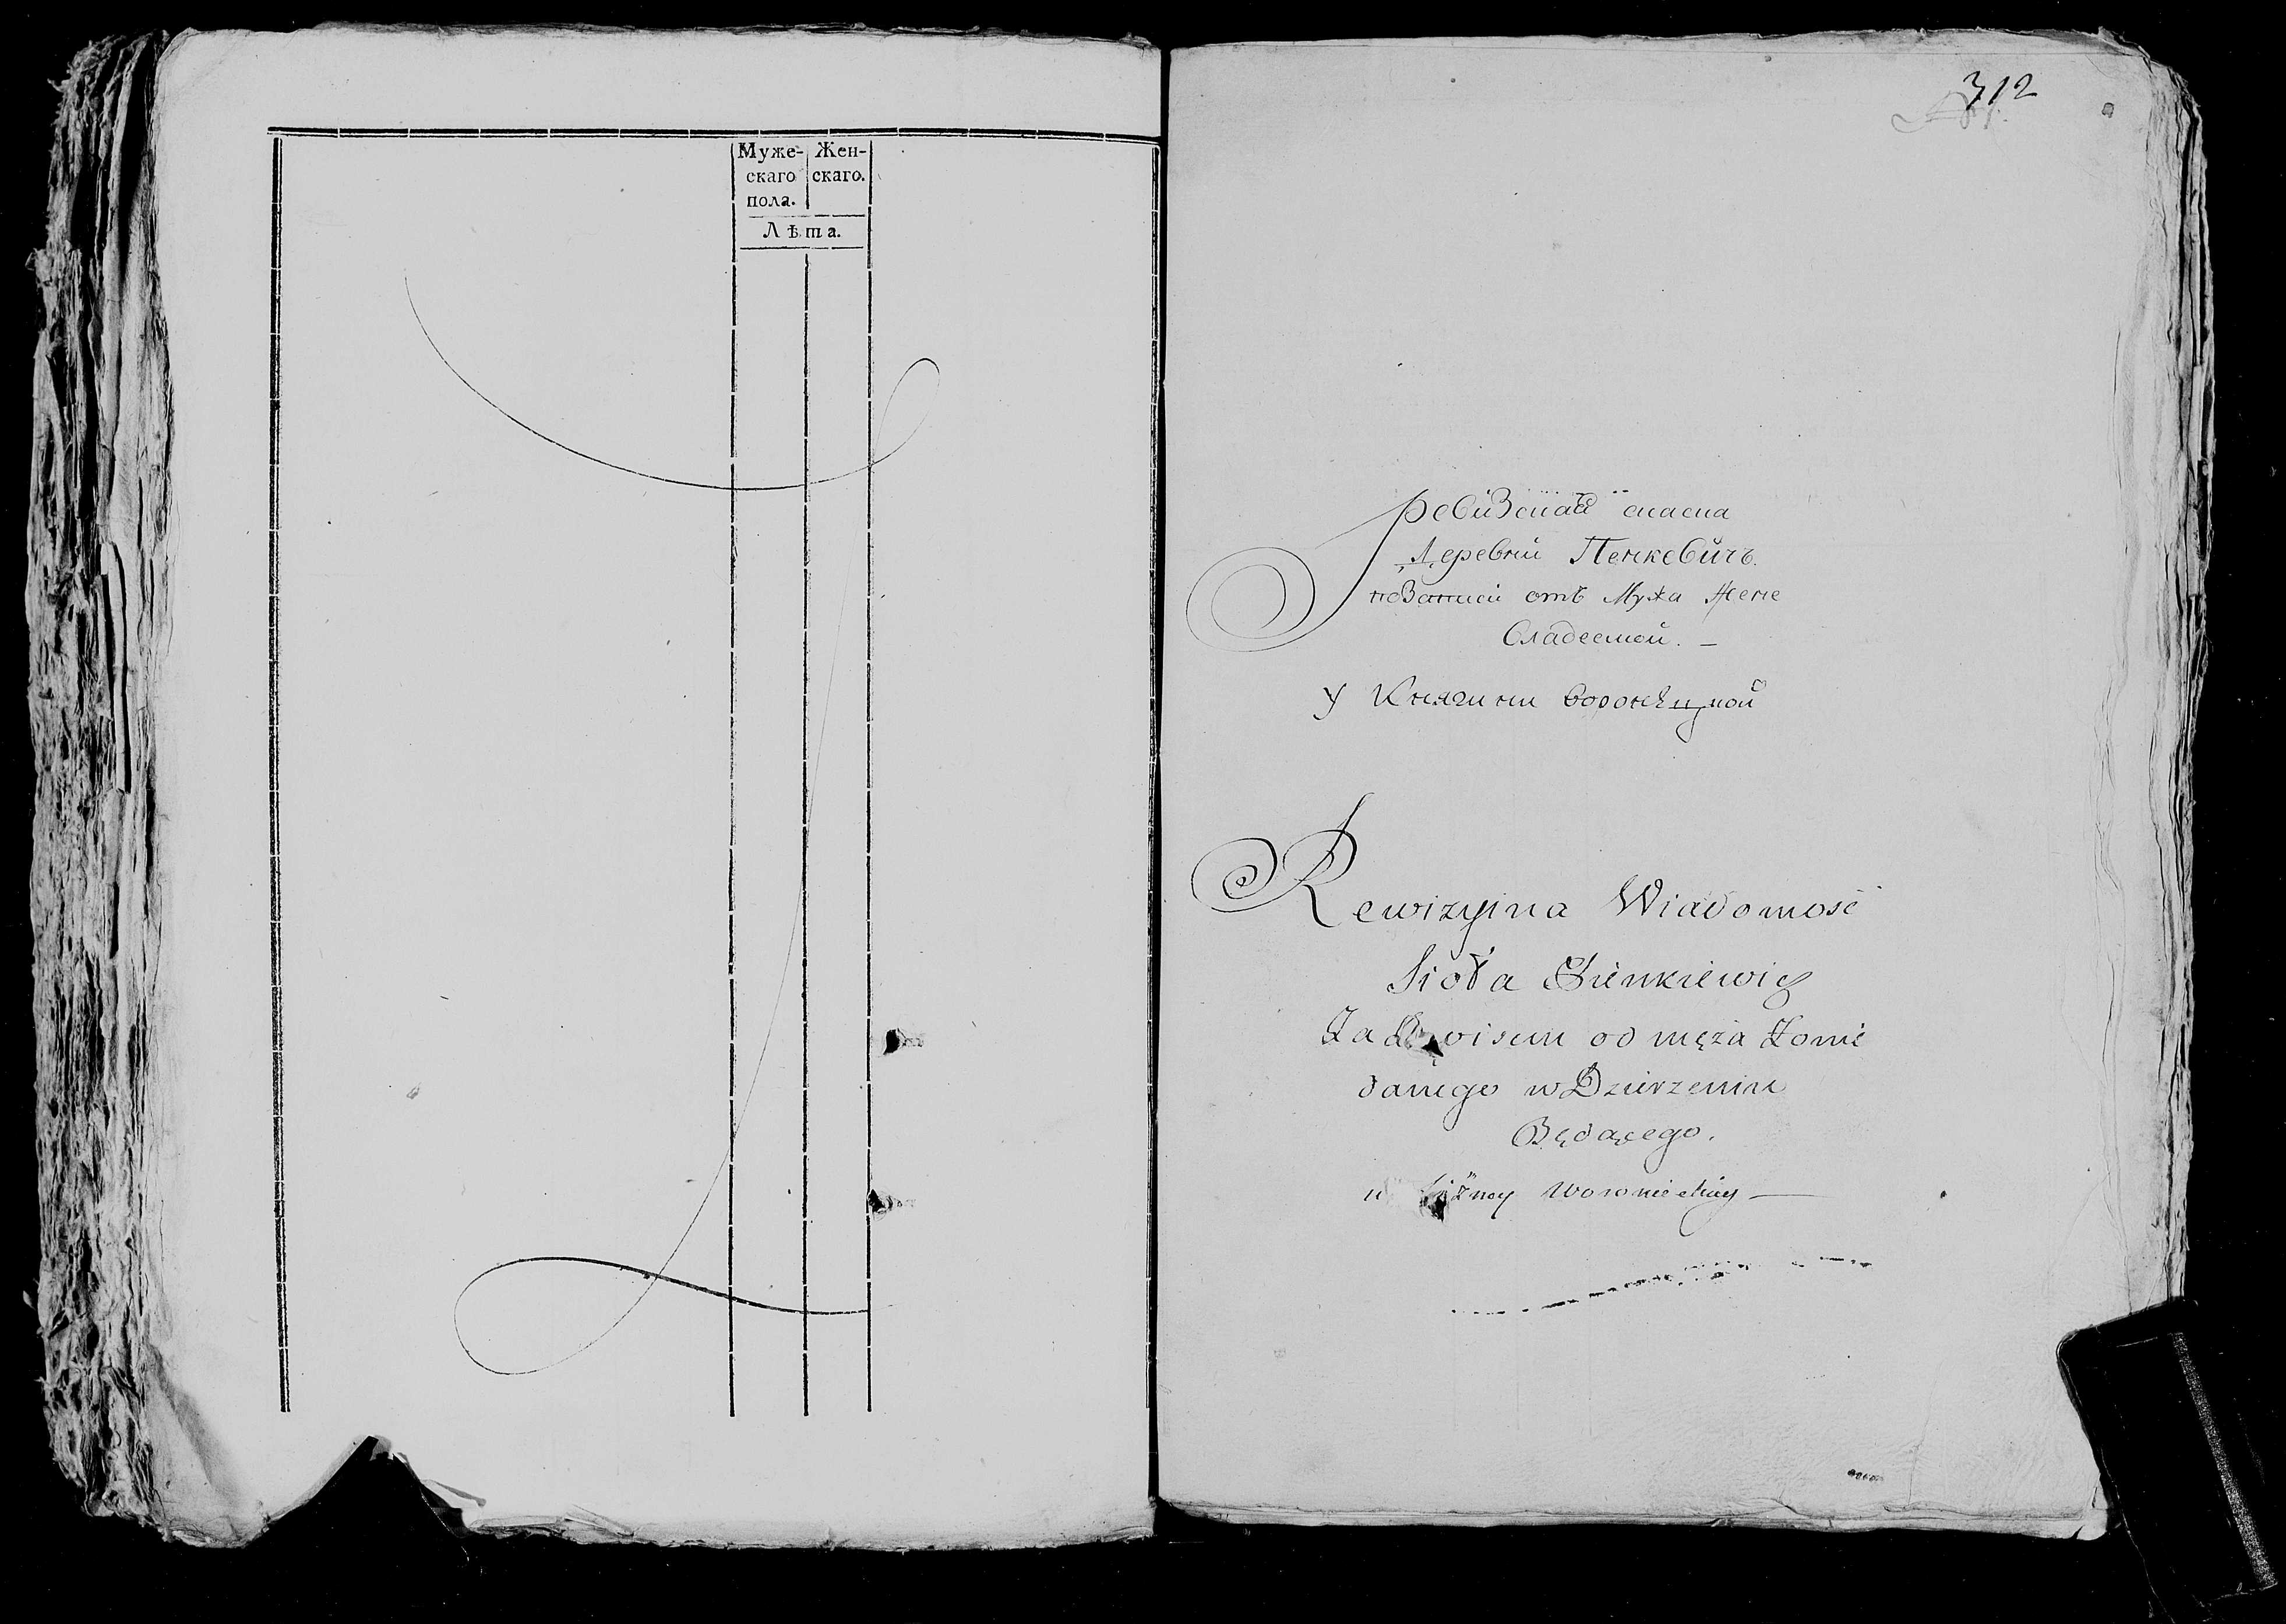 Муже-
скаго
пола.
Жен-
скаго.
Лѣта.
312
ревизская скаска
Деревни Пенкевичъ
отъ Мужа Жене
владеемой. —
У Княгини Воронѣцкой
Rewizyina Wiadomość
Sioła Pienkiewicz
od męża Żonie
danego w Dzierzeniu
Będącego.
Woronieckiey —